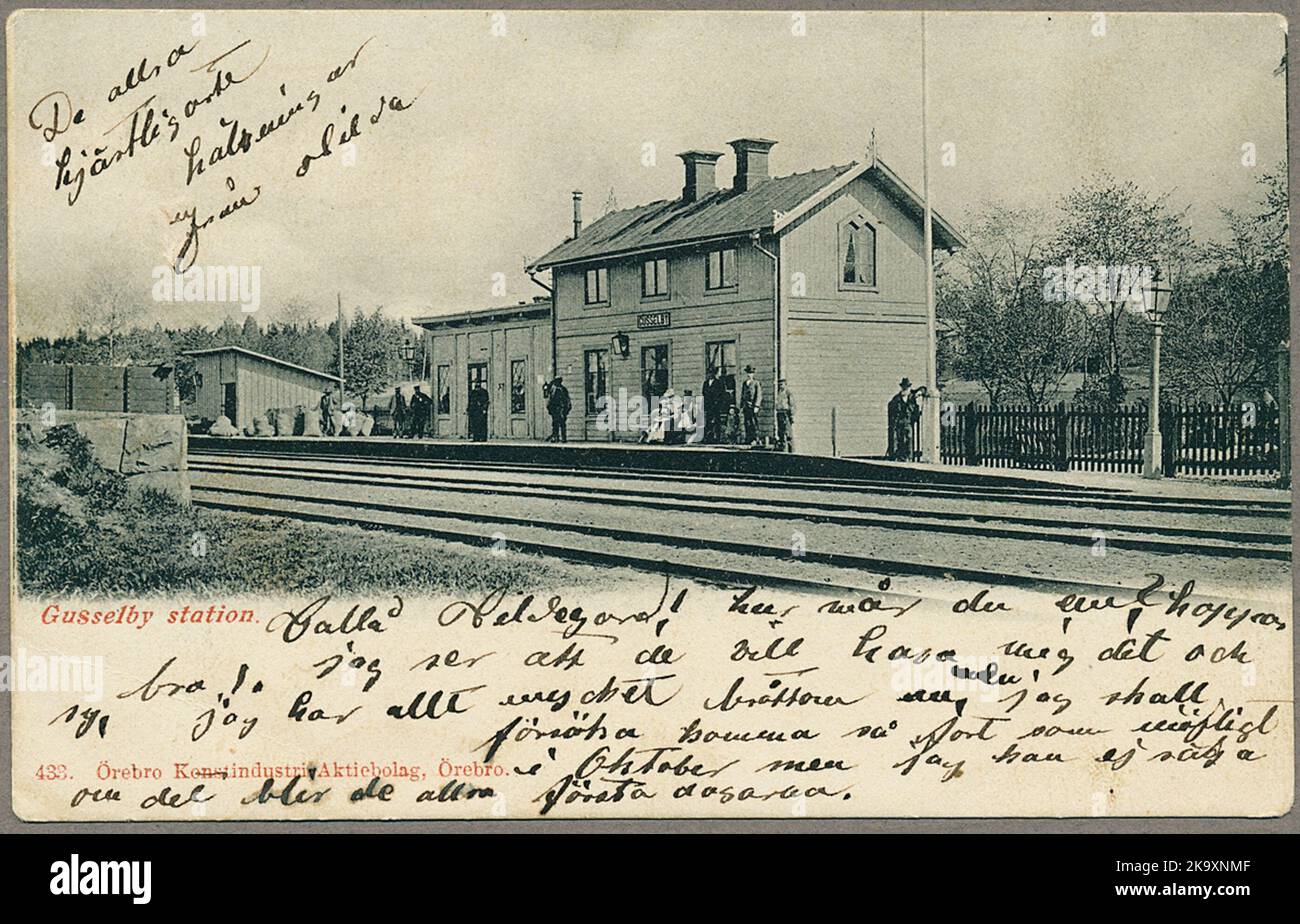 De allra
hjärtligaste
hälsningar
från
GUSSELBY
Gusselby station.
Hallå Hildegard! hur mår du nu? hoppas
bra! jag ser att de vill hava mig det och
sy, jag har allt mycket bråttom nu, men jag skall
försöka komma så fort som möjligt
433. Örebro Konstindustri-Aktiebolag, Örebro.
i Oktober men jag kan ej säga
om det blir de allra första dagarna.
alamy
Image ID: 2K9XNMF
www.alamy.com